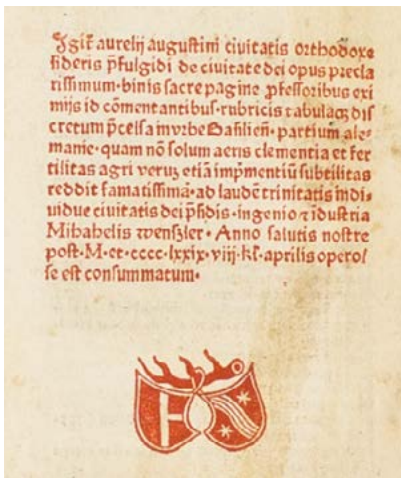 Igit᷑ aurelij augustini ciuitatis orthodoxe
sideris p̄fulgidi de ciuitate dei opus precla
rissimum·binis sacre pagine ꝓfessoribus exi
mijs id cōmentantibus·rubricis tabulaqꝫ dis
cretum p̄celsa in vrbe Basilien̄·partium ale⸗
manie·quam nō solum aeris clementia et fer
tilitas agri veruꝫ etiā imp̄mentiū subtilitas
reddit famatissimā·ad laudē trinitatis indi⸗
uidue ciuitatis dei p̄sidis·ingenio ⁊ īdustria
Mihahelis wenszler· Anno salutis nostre
post·M·et·cccc·lxxix·viij·kl̄·aprilis operos
se est consummatum·